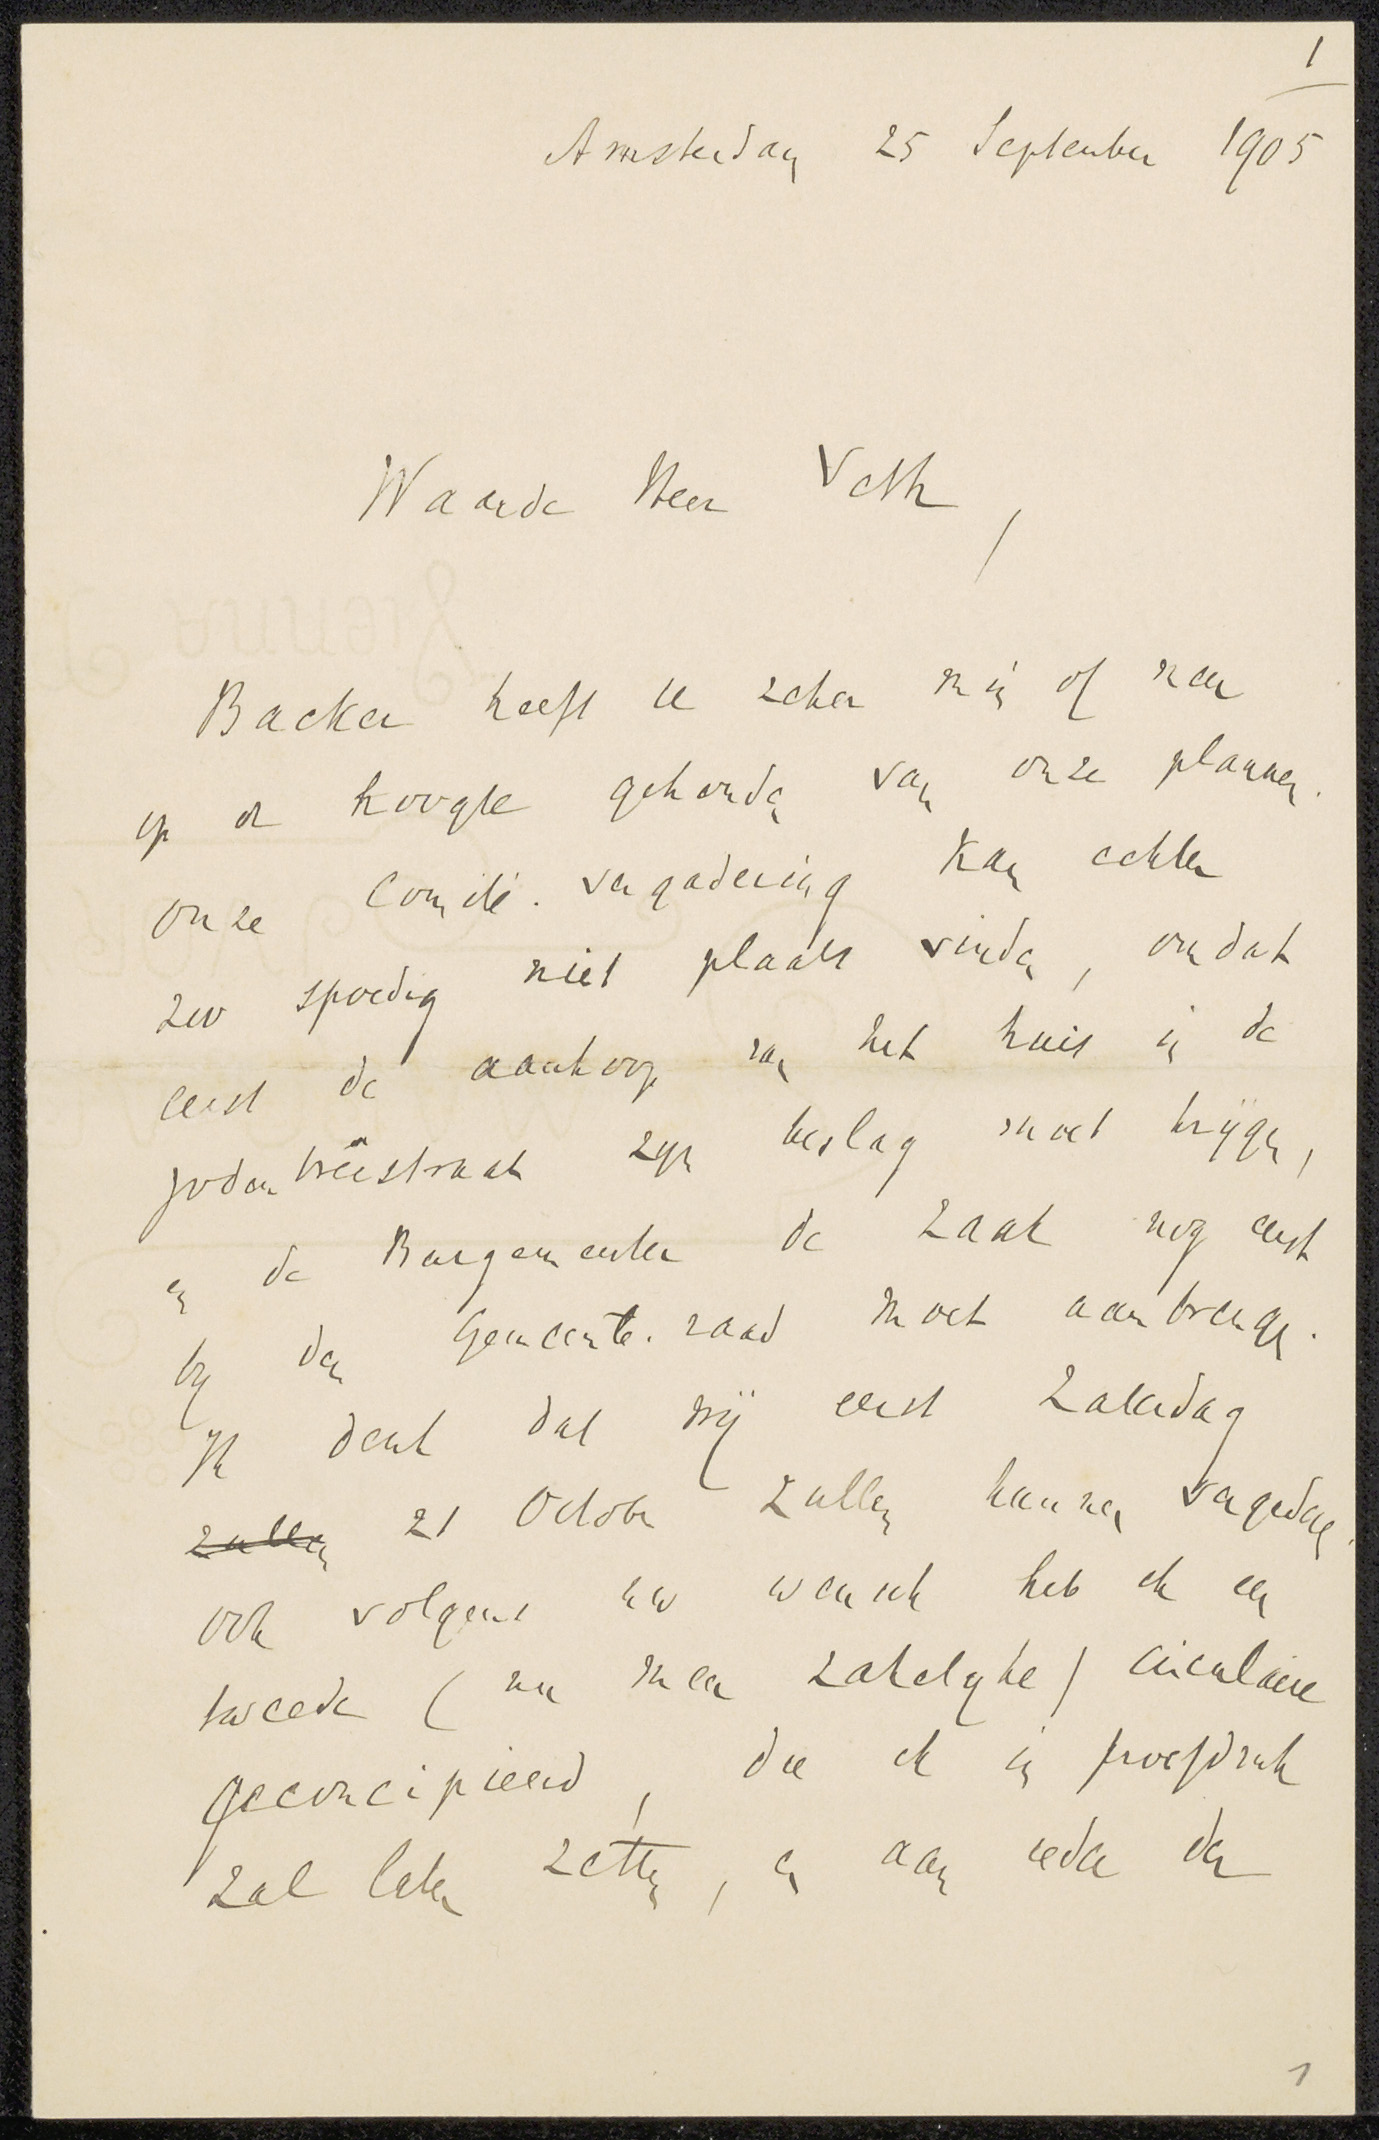 1
Amsterdam 25 September 1905
Waarde Heer Veth,
Backer heeft u zeker min of meer
op de hoogte gehouden van onze plannen.
Onze Comité. vergadering kan echter
zoo spoedig niet plaats vinden, omdat
eerst de aankoop van het huis in de
Jodenbreestraat zijn beslag moet krijgen,
en de Burgemeester de zaak nog eerst
bij den Gemeente. raad moet aanbrengen.
Ik denk dat wij eerst Zaterdag
zullen 21 October zullen kunnen vergaderen.
Ook volgens uw wensch heb ik een
tweede (nu meer zakelijke) circulaire
geconcipieerd, die ik in proefdruk
zal laten zetten, en aan ieder der
1